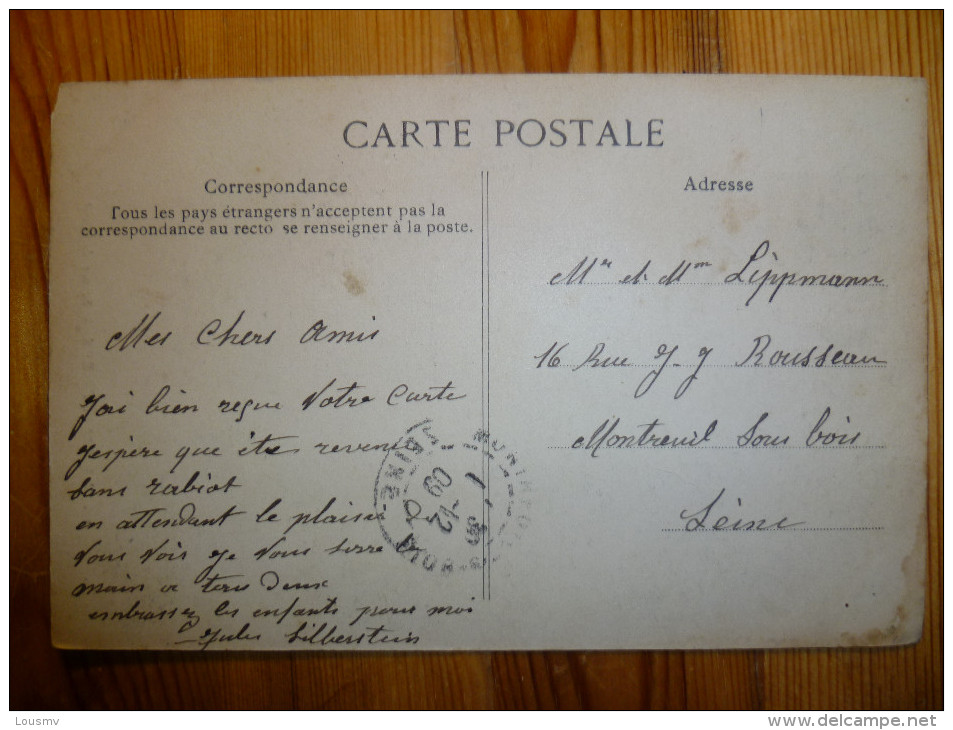 CARTE POSTALE
Correspondance
Tous les pays étrangers n'acceptent pas la
correspondance au recto se renseigner à la poste.
Mes Chers Amis
J'ai bien reçue Votre Carte
J'espère que ête revenue
Sans rabiot
en attendant le plaisir
Vous Voir Je Vous serre
main a tous deux
embrassez les enfants pour moi
Jules Silberstein
Adresse
Mr et Mme Lippmann
16 Rue J-J Rousseau
Montreuil Sous bois
Seine
09
Lousmv
http://www.delcampe.net